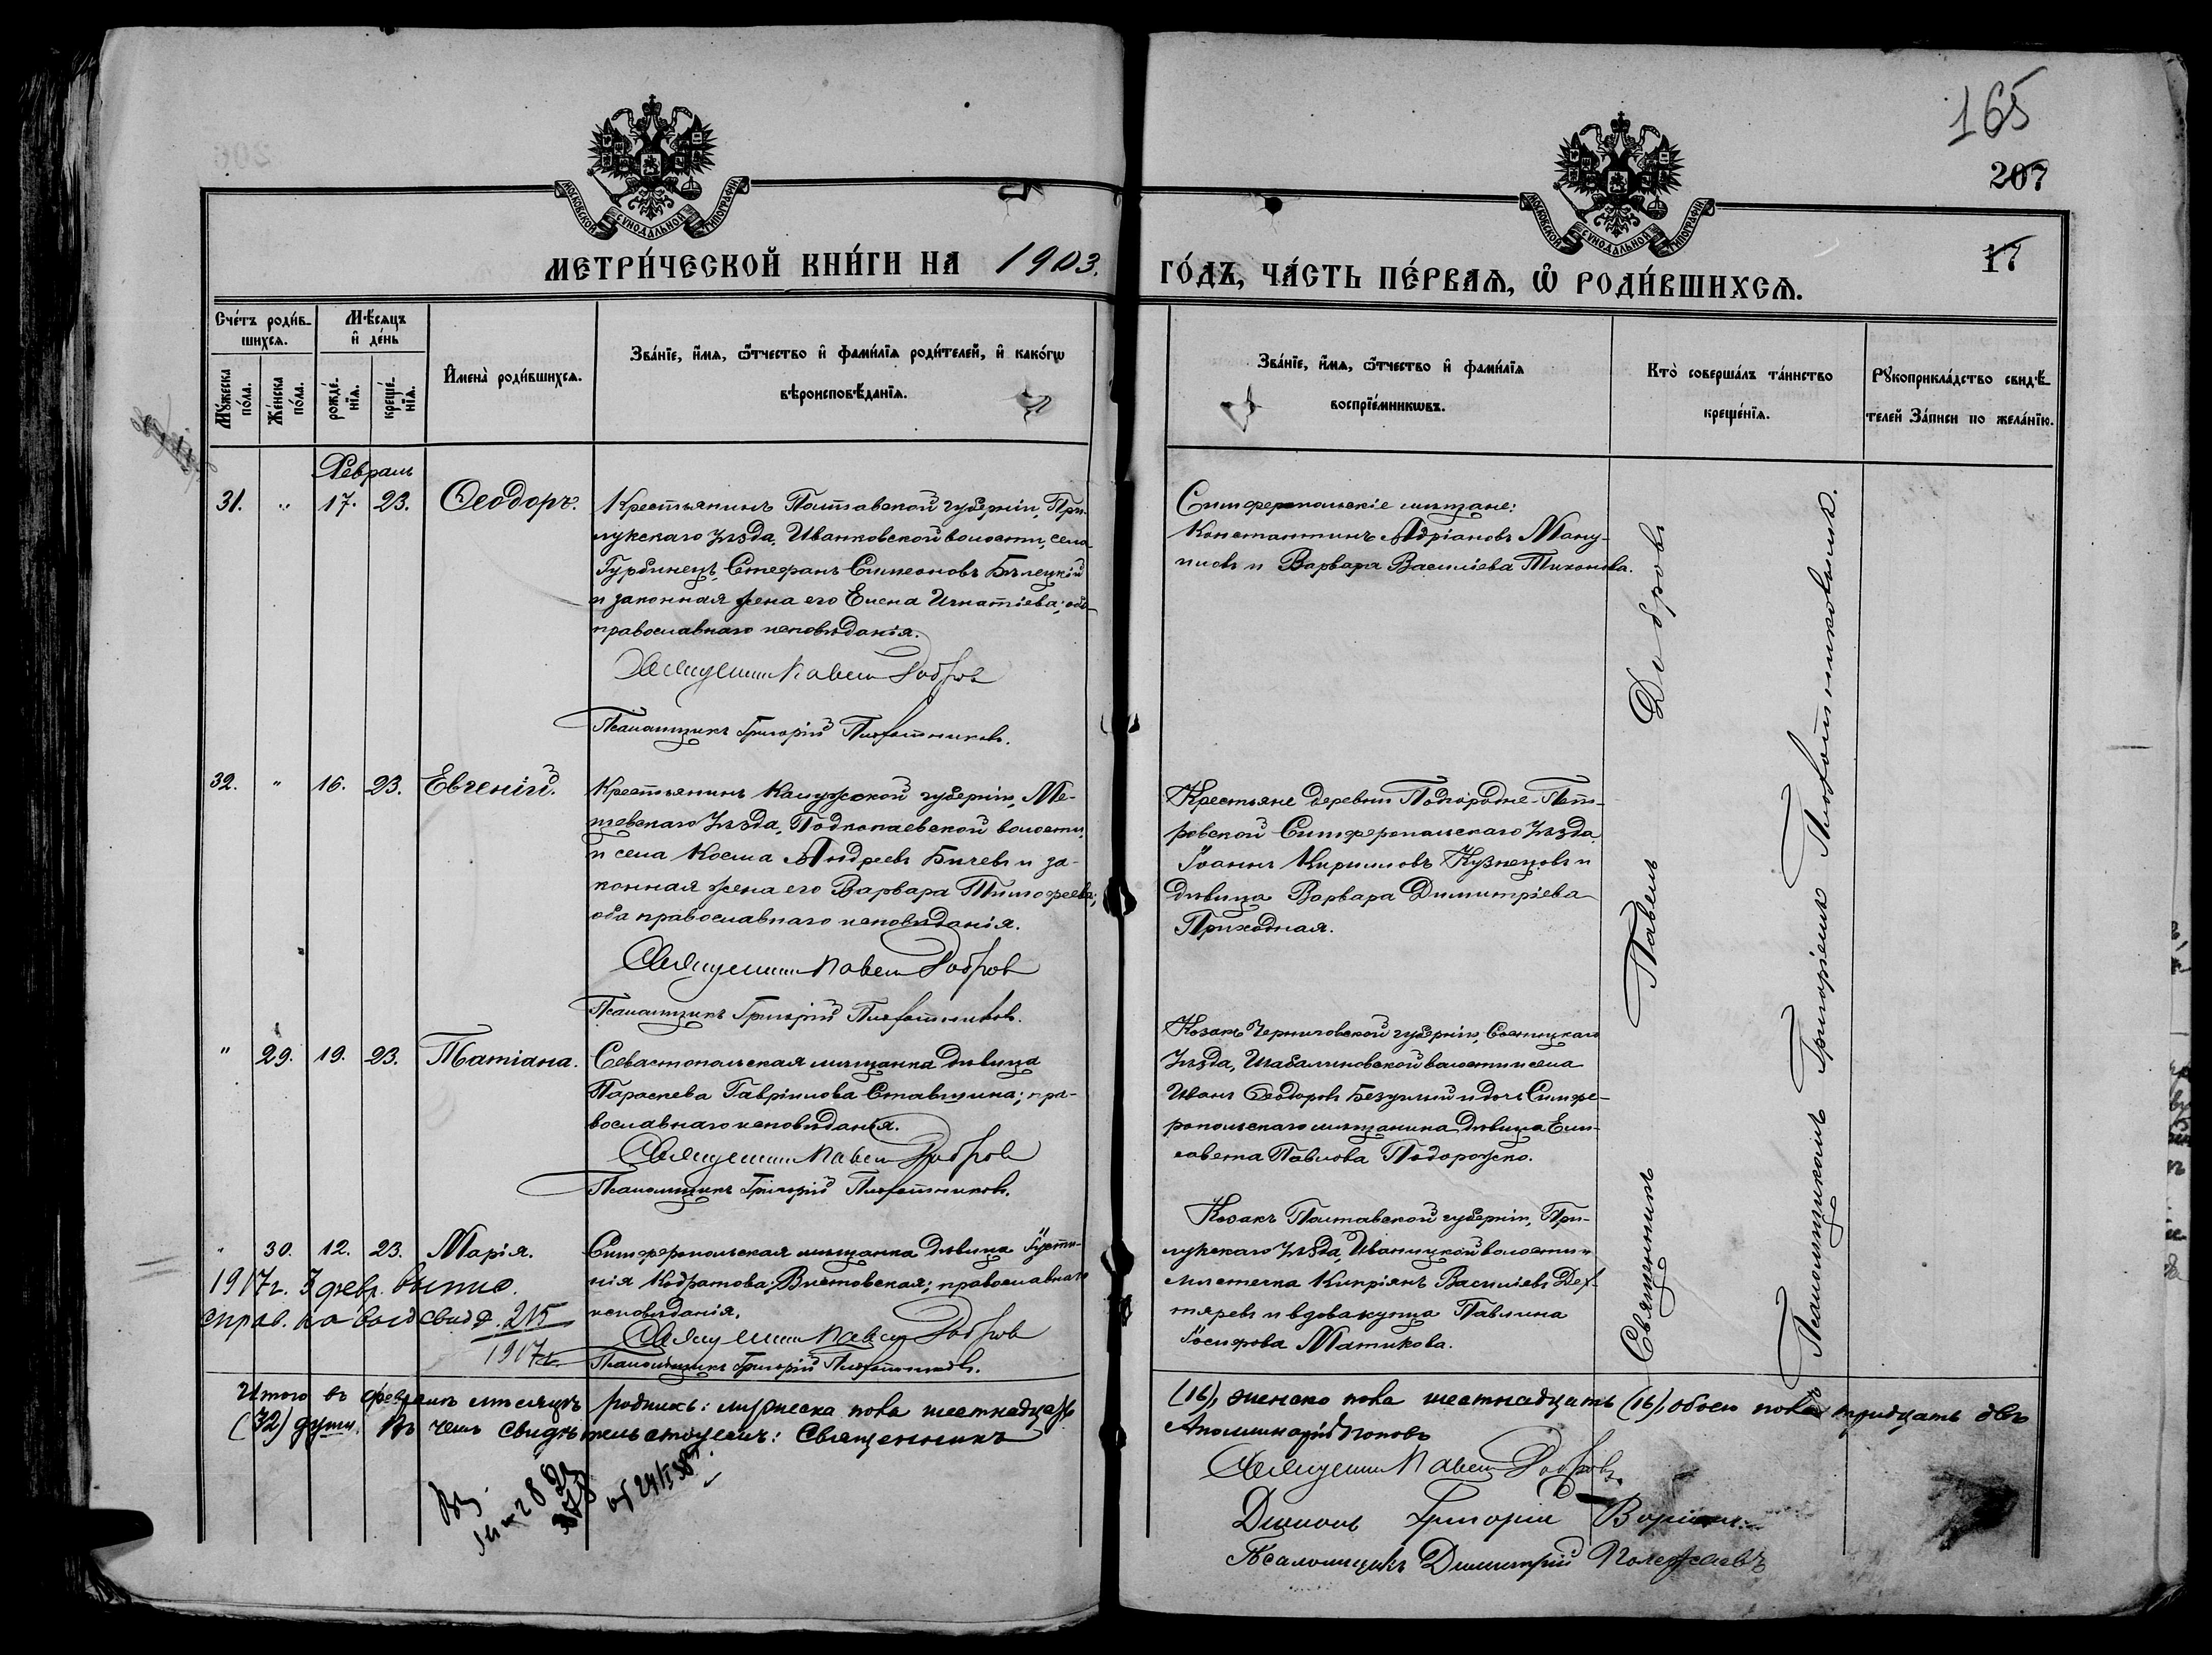 165
207
17
МОСКОВСКОЙ СѴНОДАЛЬНОЙ ТИПОГРАФІИ
МОСКОВСКОЙ СѴНОДАЛЬНОЙ ТИПОГРАФІИ
МЕТРИ́ЧЕСКОЙ КНИ́ГИ НА 1903.
ГО́ДЪ, ЧА́СТЬ ПЕ́РВАѦ, Ѽ РОДИ́ВШИХСѦ.
Сче́тъ роди́в-
шихсѧ.
Мꙋ́жеска по́ла.
Же́нска по́ла.
Мѣ́сѧцъ
и҆ де́нь
рожде́-
нїѧ.
креще́-
нїѧ.
И҆мена̀ роди́вшихсѧ.
Зва́нїе, и҆́мѧ, ѻ҆́тчество и҆ фами́лїѧ роди́телей, и҆ како́гѡ
вѣроисповѣ́данїѧ.
Зва́нїе, и҆́мѧ, ѻ҆́тчество и҆ фами́лїѧ
воспрїе́мникѡвъ.
Кто̀ соверша́лъ та́инство
креще́нїѧ.
Рꙋкоприкла́дство свидѣ́-
телей За́писи по жела́нїю.
Февраль
31. " 17. 23. Ѳеодоръ.
Крестьянинъ Полтавской губерніи, При-
лукскаго уѣзда, Иванковской волости, села
Гурбинецъ, Стефанъ Симеоновъ Бѣлецкій
и законная жена его Елена Игнатіева; оба
православнаго исповѣданія.
Священникъ Павелъ Добровъ
Псаломщикъ Григорій Плотниковъ.
Симферопольскіе мѣщане:
Константинъ Адріановъ Ману-
иловъ и Варвара Василіева Тихонова.
32. " 16. 23. Евгеній.
Крестьянинъ Калужской губерніи, Ме-
щевскаго уѣзда, Подкопаевской волости
и села Косма Андреевъ Бычевъ и за-
конная жена его Варвара Тимофеева;
оба православнаго исповѣданія.
Священникъ Павелъ Добровъ
Псаломщикъ Григорій Плотниковъ.
Крестьяне деревни Подгородне-Пет-
ровской Симферопольскаго уѣзда
Іоаннъ Кирилловъ Кузнецовъ и
дѣвица Варвара Димитріева
Приходная.
" 29. 19. 23. Татіана.
Севастопольская мѣщанка дѣвица
Параскева Гавріилова Ставицкая; пра-
вославнаго исповѣданія.
Священникъ Павелъ Добровъ
Псаломщикъ Григорій Плотниковъ.
Козакъ Черниговской губерніи, Сосницкаго
уѣзда, Шабалиновской волости и села
Иванъ Ѳеодоровъ Безуглый и дочь Симфе-
ропольскаго мѣщанина дѣвица Ели-
савета Павлова Подорожко.
" 30. 12. 23. Марія.
Симферопольская мѣщанка дѣвица Іусти-
нія Кодратова; православнаго
исповѣданія.
Священникъ Павелъ Добровъ
Псаломщикъ Григорій Плотниковъ.
Козакъ Полтавской губерніи, При-
лукскаго уѣзда, Иваницкой волости и
мѣстечка Кипріанъ Василіевъ Дех-
тяревъ и вдова купца Павлина
Іосифова Матикова.
1917г. 3 февр. выпис.
справ. на выд свид. 215
1917г.
Священникъ Павелъ Добровъ
Псаломщикомъ Григоріемъ Плотниковымъ.
Итого въ февралѣ мѣсяцѣ родилось: мужеска пола шестнадцать
(16), женска пола шестнадцать (16), обоего пола тридцать двѣ
(32) души. Въ чемъ свидѣтельствуемъ: Священникъ
Аполлинарій Поповъ
Священникъ Павелъ Добровъ.
Діаконъ Григорій
Псаломщикъ Димитрій Полежаевъ